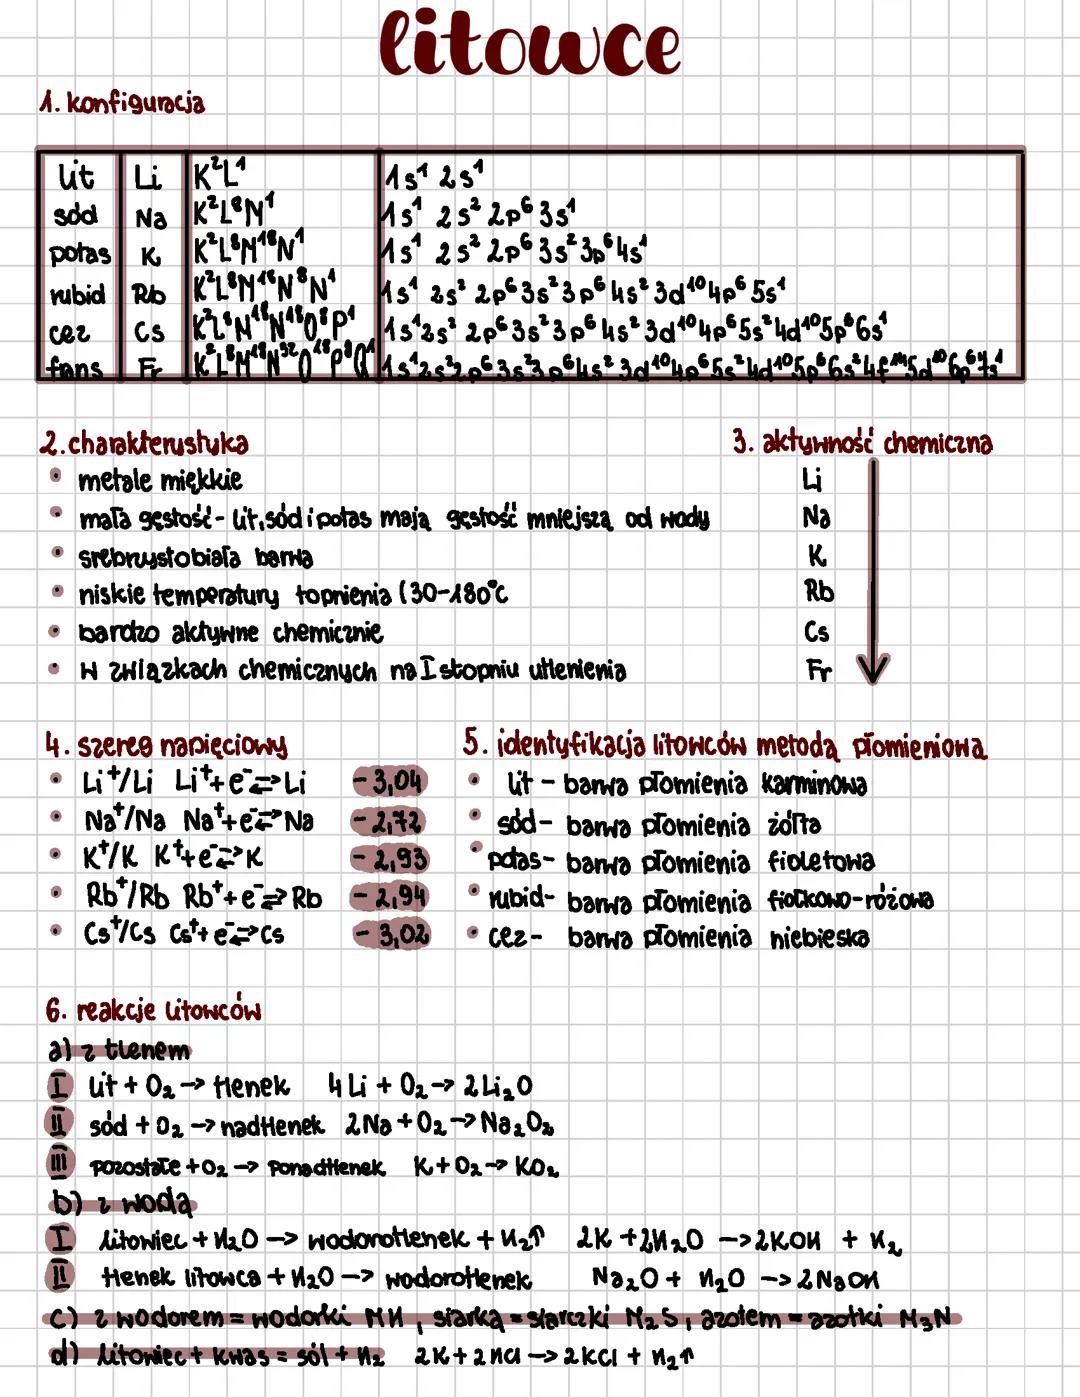 litowce
1. konfiguracja
lit Li K²L¹ 1s¹ 2s¹
sód Na K²L⁸M¹ 1s¹ 2s² 2p⁶ 3s¹
potas K K²L⁸M¹⁸N¹ 1s¹ 2s² 2p⁶ 3s² 3p⁶ 4s¹
rubid Rb K²L⁸M¹⁸N⁸N¹ 1s¹ 2s² 2p⁶ 3s² 3p⁶ 4s² 3d¹⁰ 4p⁶ 5s¹
cez Cs K²L⁸M¹⁸N¹⁸O⁸P¹ 1s¹ 2s² 2p⁶ 3s² 3p⁶ 4s² 3d¹⁰ 4p⁶ 5s² 4d¹⁰ 5p⁶ 6s¹
frans Fr K²L⁸M¹⁸N³²O¹⁸P⁸Q¹ 1s¹ 2s² 2p⁶ 3s² 3p⁶ 4s² 3d¹⁰ 4p⁶ 5s² 4d¹⁰ 5p⁶ 6s² 4f¹⁴ 5d¹⁰ 6p⁶ 7s¹
2. charakterystyka
• metale miękkie
• mała gęstość - lit, sód i potas mają gęstość mniejszą od wody
• srebrzystobiała barwa
• niskie temperatury topnienia (30-180°C
• bardzo aktywne chemicznie
• w związkach chemicznych na I stopniu utlenienia
3. aktywność chemiczna
Li
Na
K
Rb
Cs
Fr
4. szereg napięciowy
• Li⁺/Li Li⁺ + e⁻ ⇌ Li - 3,04
• Na⁺/Na Na⁺ + e⁻ ⇌ Na - 2,72
• K⁺/K K⁺ + e⁻ ⇌ K - 2,93
• Rb⁺/Rb Rb⁺ + e⁻ ⇌ Rb - 2,94
• Cs⁺/Cs Cs⁺ + e⁻ ⇌ Cs - 3,02
5. identyfikacja litowców metodą płomieniową
• lit - barwa płomienia karminowa
• sód - barwa płomienia żółta
• potas - barwa płomienia fioletowa
• rubid - barwa płomienia fiołkowo-różowa
• cez - barwa płomienia niebieska
6. reakcje litowców
a) z tlenem
I lit + O₂ → tlenek 4Li + O₂ → 2Li₂O
II sód + O₂ → nadtlenek 2Na + O₂ → Na₂O₂
III pozostałe + O₂ → ponadtlenek K + O₂ → KO₂
b) z wodą
I litowiec + H₂O → wodorotlenek + H₂↑ 2K + 2H₂O → 2KOH + H₂
II tlenek litowca + H₂O → wodorotlenek Na₂O + H₂O → 2NaOH
c) z wodorem = wodorki MH, siarką = siarczki M₂S, azotem = azotki M₃N
d) litowiec + kwas = sól + H₂ 2K + 2HCl → 2KCl + H₂↑